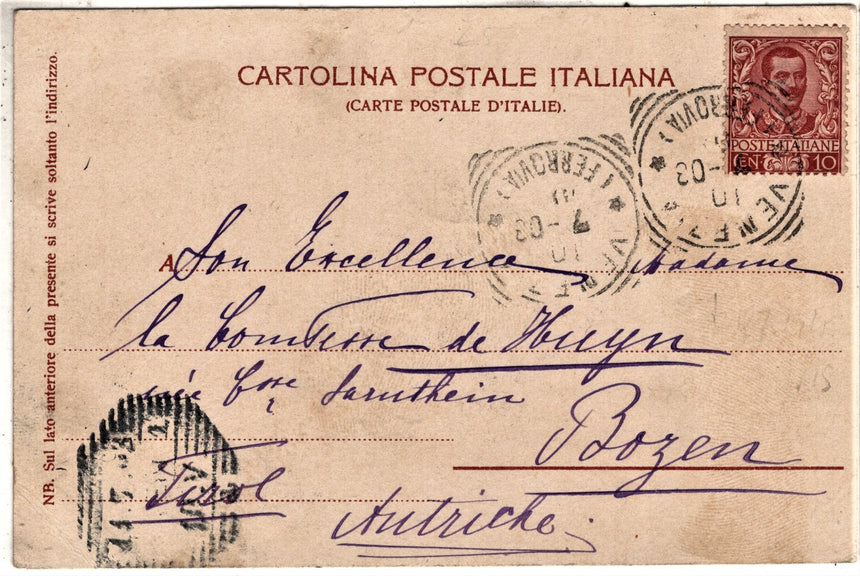 CARTOLINA POSTALE ITALIANA
(CARTE POSTALE D'ITALIE).
POSTE ITALIANE
CEN 10
(FERROVIA)
10
7-03
VENEZIA
(FERROVIA)
10
-03
VENEZIA
A Son Excellence Madame
la Comtesse de Huyn
née Csse Sarnthein
Bozen
Tirol
Autriche.
NB. Sul lato anteriore della presente si scrive soltanto l'indirizzo.